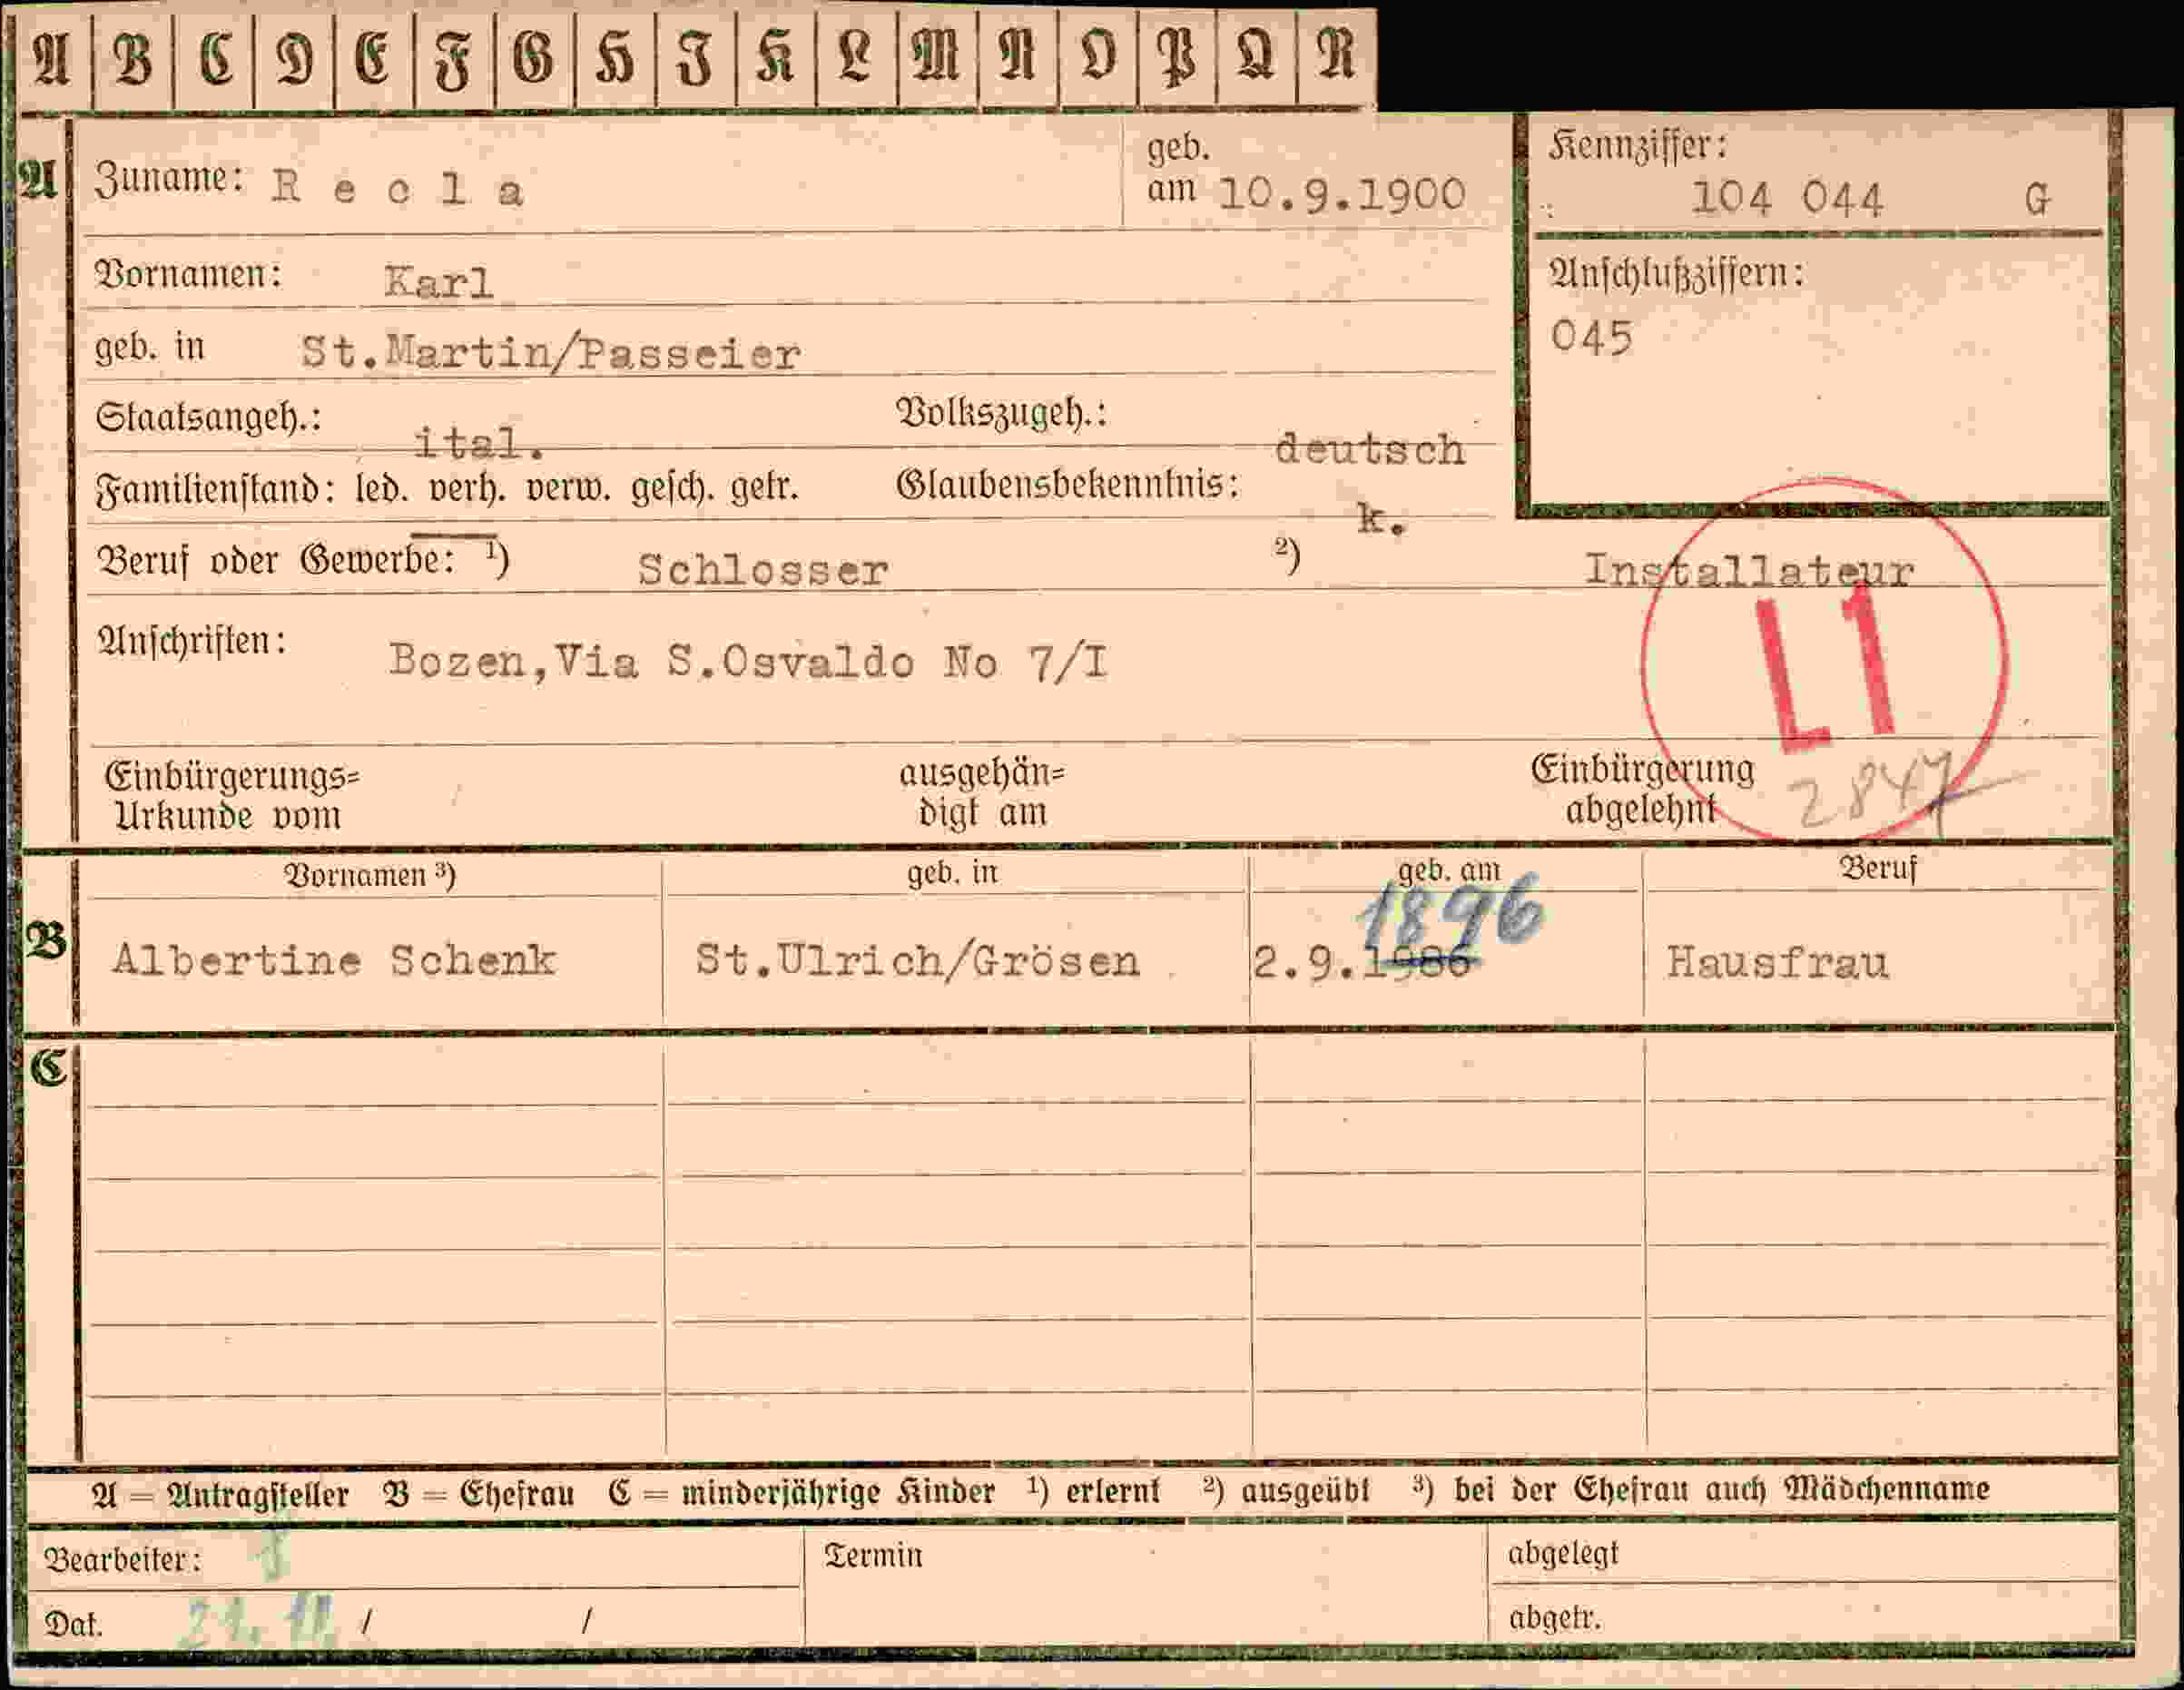 A B C D E F G H I K L M N O P Q R
A Zuname: R e c l a geb. am 10.9.1900 Kennziffer: 104 044 G
Vornamen: Karl Anschlußziffern:
geb. in St.Martin/Passeier 045
Staatsangeh.: ital. Volkszugeh.: deutsch
Familienstand: led. verh. verw. gesch. getr. Glaubensbekenntnis: k.
Beruf oder Gewerbe: ¹) Schlosser ²) Installateur
L1
Anschriften: Bozen,Via S.Osvaldo No 7/I
Einbürgerungs= ausgehän= Einbürgerung
Urkunde vom digt am abgelehnt 2847
Vornamen ³) geb. in geb. am Beruf
1896
B Albertine Schenk St.Ulrich/Grösen 2.9.1986 Hausfrau
C
A = Antragsteller B = Ehefrau C = minderjährige Kinder ¹) erlernt ²) ausgeübt ³) bei der Ehefrau auch Mädchenname
Bearbeiter: Termin abgelegt
Dat. / / abgetr.